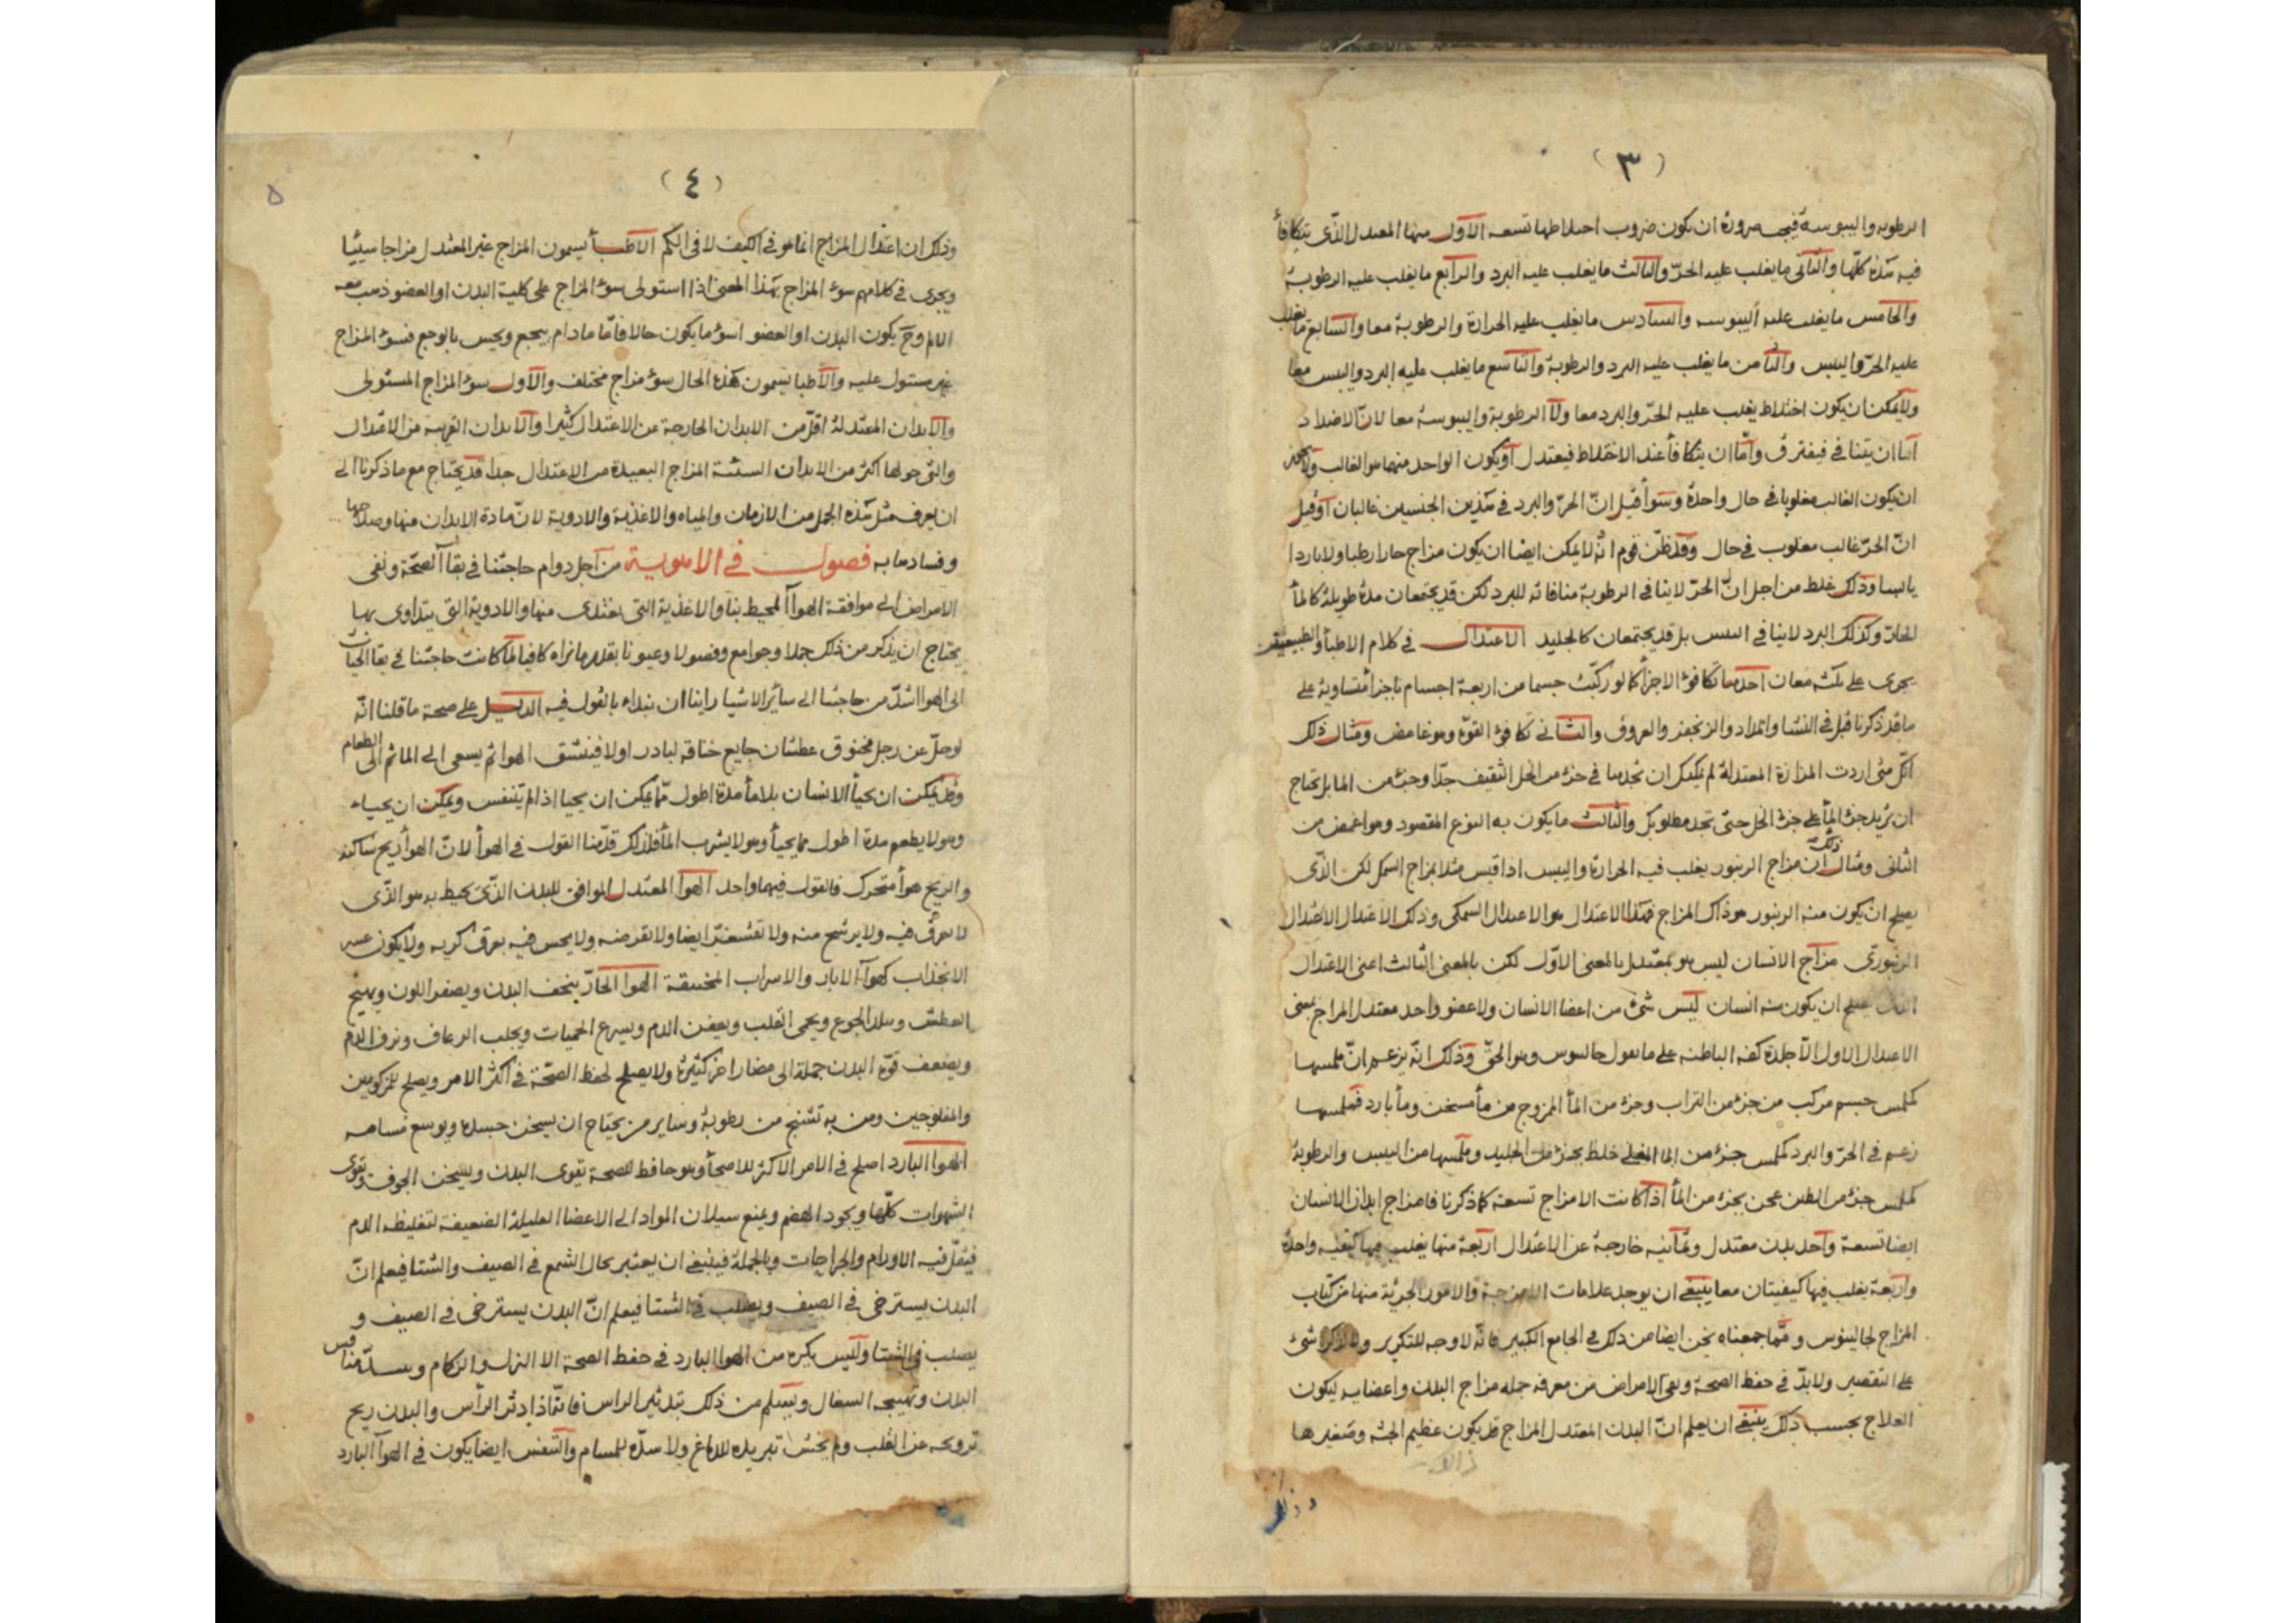 (٣)
الرطوبه واليبوسة فيجب ضرورة ان يكون ضروب اختلاطها تسعه الاول منها المعتدل الذى يتكافأ
فيه هذه كلّها والثانى ما يغلب عليه الحرّ والثالث ما يغلب عليه البرد والرابع ما يغلب عليه الرطوبة
والخامس ما يغلب عليه اليبوسه والسادس ما يغلب عليه الحرارة والرطوبة معا والسابع ما يغلب
عليه الحرّ واليبس والثامن ما يغلب عليه البرد والرطوبة والتاسع ما يغلب عليه البرد واليبس معا
ولا يمكن ان يكون اختلاط يغلب عليه الحرّ والبرد معا ولا الرطوبة واليبوسة معا لانّ الاضداد
امّا ان يتنافى فيفترق وامّا ان يتكافأ عند الاختلاط فيعتدل او يكون الواحد منهما هو الغالب ولا يجوز
ان يكون الغالب مغلوبا فى حال واحدة وسوأ قيل انّ الحرّ والبرد فى هذين الجنسين غالبان او قيل
انّ الحرّ غالب مغلوب فى حال وقد ظنّ قوم انّه لا يمكن ايضا ان يكون مزاج حارا رطبا ولا باردا
يابسا وذلك غلط من اجل انّ الحرّ لا ينافى الرطوبة منافاته للبرد لكن قد يجتمعان مدة طويلة كالمأ
الحارّ وكذلك البرد لا ينافى اليبس بل قد يجتمعان كالجليد الاعتدال فى كلام الاطبأ والطبيعيين
يجرى على ثلثه معان احدها تكافؤ الاجزأ كما لو ركّبت جسما من اربعة اجسام باجزأ متساوية على
ما قد ذكرنا قبل فى النشا والمداد والزنجفر والعروق والثانى تكافؤ القوّة وهو غامض ومثال ذلك
انّك متى اردت المزازة المعتدلة لم يمكنك ان تجدها فى جزء من الخل الثقيف جدّا وجزء من الما بل يحتاج
ان يزيد جزء المأ على جزء الخل حتى تجد مطلوبك والثالث ما يكون به النوع المقصود وهو اغمض من
الثانى ومثال ذلك ان مزاج الزنبور يغلب فيه الحرارة واليبس اذا قيس مثلا بمزاج السمك لكن الذّى
يصلح ان يكون منه الزنبور هو ذاك المزاج فهذا الاعتدال هو الاعتدال السمكى وذلك الاعتدال الاعتدال
الزنبورى مزاج الانسان ليس هو بمعتدل بالمعنى الاوّل لكن بالمعنى الثالث اعنى الاعتدال
الذى يصلح ان يكون منه انسان ليس شئ من اعضا الانسان ولا عضو واحد معتدل المزاج بمعنى
الاعتدال الاول الاّ جلدة كفه الباطنه على ما يقول جالينوس وهو الحقّ وذلك انّه يزعم انّ ملمسها
كملمس جسم مركب من جزء من التراب وجزء من المأ الممزوج من مأ مسخن ومأ بارد فملمسها
زعم فى الحرّ والبرد كملمس جزء من الما المغلى خلط بجزء من الجليد وملمسها من اليبس والرطوبة
كملمس جزء من الطين عجن بجزء من المأ اذا كانت الامزاج تسعة كما ذكرنا فامزاج ابدان الانسان
ايضا تسعة واحد بدن معتدل وثمانيه خارجة عن الاعتدال اربعة منها يغلب فيها كيفيه واحدة
واربعة يغلب فيها كيفيتان معا ينبغى ان يوجد علامات الامزجة والامور الجزئية منها من كتاب
المزاج لجالينوس وممّا جمعناه نحن ايضا من ذلك فى الجامع الكبير فانّه لا وجه للتكرير شئ
على التقصير ولا بدّ فى حفظ الصحة ونفى الامراض من معرفه جمله مزاج البدن واعضايه ليكون
العلاج بحسب ذلك ينبغى ان يعلم انّ البدن المعتدل المزاج قد يكون عظيم الجثه وصغيرها
وذلك
(٤)
٥
وذلك ان اعتدال المزاج انما هو فى الكيف لا فى الكم الاطبأ يسمون المزاج غير المعتدل مزاجا سيئا
ويجرى فى كلامهم سوء المزاج بهذا المعنى اذا استولى سوء المزاج على كلية البدن او العضو ذهب معه
الالم وح يكون البدن او العضو اسوء ما يكون حالا فامّا ما دام يجع ويحس بالوجع فسوء المزاج
غير مستول عليه والاطبا يسمون هذه الحال سوء مزاج مختلف والاول سوء المزاج المستولى
والابدان المعتدلة اقلّ من الابدان الخارجة عن الاعتدال كثيرا والابدان القريبه من الاعتدال
والتى حولها اكثر من الابدان السيئة المزاج البعيدة من الاعتدال جدا قد يحتاج مع ما ذكرنا الى
ان يعرف مثل هذه الجمل من الازمان والمياه والاغذية والادوية لانّ مادة الابدان منها وصلاحها
وفسادها به فصول فى الاهوية من اجل دوام حاجتنا فى بقأ الصحّة ونفى
الامراض الى موافقة الهوأ المحيط بنا والاغذية التى نغتذى منها والادوية التى يتداوى بها
يحتاج ان يذكر من ذلك جملا وجوامع وفصولا وعيونا بقدر ما نراه كافيا لما كانت حاجتنا فى بقا الحيات
الى الهوا اشدّ من حاجتنا الى سائر الاشيا راينا ان نبدا بالقول فيه الدليل على صحة ما قلنا انّه
لو حلّ عن رجل مخنوق عطشان جايع خناقه لبادر اولا فينشق الهوا ثم يسعى الى الما ثم الى الطعام
وقد يمكن ان يحيأ الانسان بلا مأ مدة اطول ممّا يمكن ان يحيا اذا لم يتنفس ويمكن ان يحيأ
وهو لا يطعم مدة اطول مما يحيأ وهو لا يشرب المأ فلذلك قدّمنا القول فى الهوأ لانّ الهوأ ريح ساكنة
والريح هوأ متحرك فالقول فيهما واحد الهوا المعتدل الموافق للبدن الذّى يحيط به هو الذّى
لا يعرق فيه ولا يرشح منه ولا تقشعرّ ايضا ولا تقرضه ولا يحس فيه بعرق كريه ولا يكون عسر
الانجذاب كهوأ الابار والاسراب المخنقة الهوا الحارّ ينحف البدن ويصفر اللون ويهيج
العطش ويبلد الجوع ويحمى القلب ويعفن الدم ويسرع الحميات ويجلب الرعاف ونزف الدم
ويضعف قوّة البدن جملة الى مضار اخر كثيرة ولا يصلح لحفظ الصحّة فى اكثر الامر ويصلح للمزكومين
والمفلوجين ومن به تشنج من رطوبة وساير من يحتاج ان يسخن جسده ويوسع مسامه
الهوا البارد اصلح فى الامر الاكثر للاصحأ وهو حافظ للصحة يقوى البدن ويسخن الجوف ويقوى
الشهوات كلّها ويجود الهضم ويمنع سيلان المواد الى الاعضا العليلة الضعيفة لتغليظه الدم
فيقلّ فيه الاورام والجراحات وبالجملة فينبغى ان يعتبر بحال الشمع فى الصيف والشتا فيعلم انّ
البدن يسترخى فى الصيف ويصلب فى الشتا فيعلم انّ البدن يسترخى فى الصيف و
يصلب فى الشتا وليس يكره من الهوا البارد فى حفظ الصحة الا النزل والزكام وسدّ منافس
البدن وتهييجه السعال ويسلم من ذلك بتدثير الراس فانّه اذا دثر الرأس والبدن ريح
ترويحه عن القلب ولم يخش تبريده للدماغ ولا سدّه للمسام والتنفس ايضا يكون فى الهوأ البارد